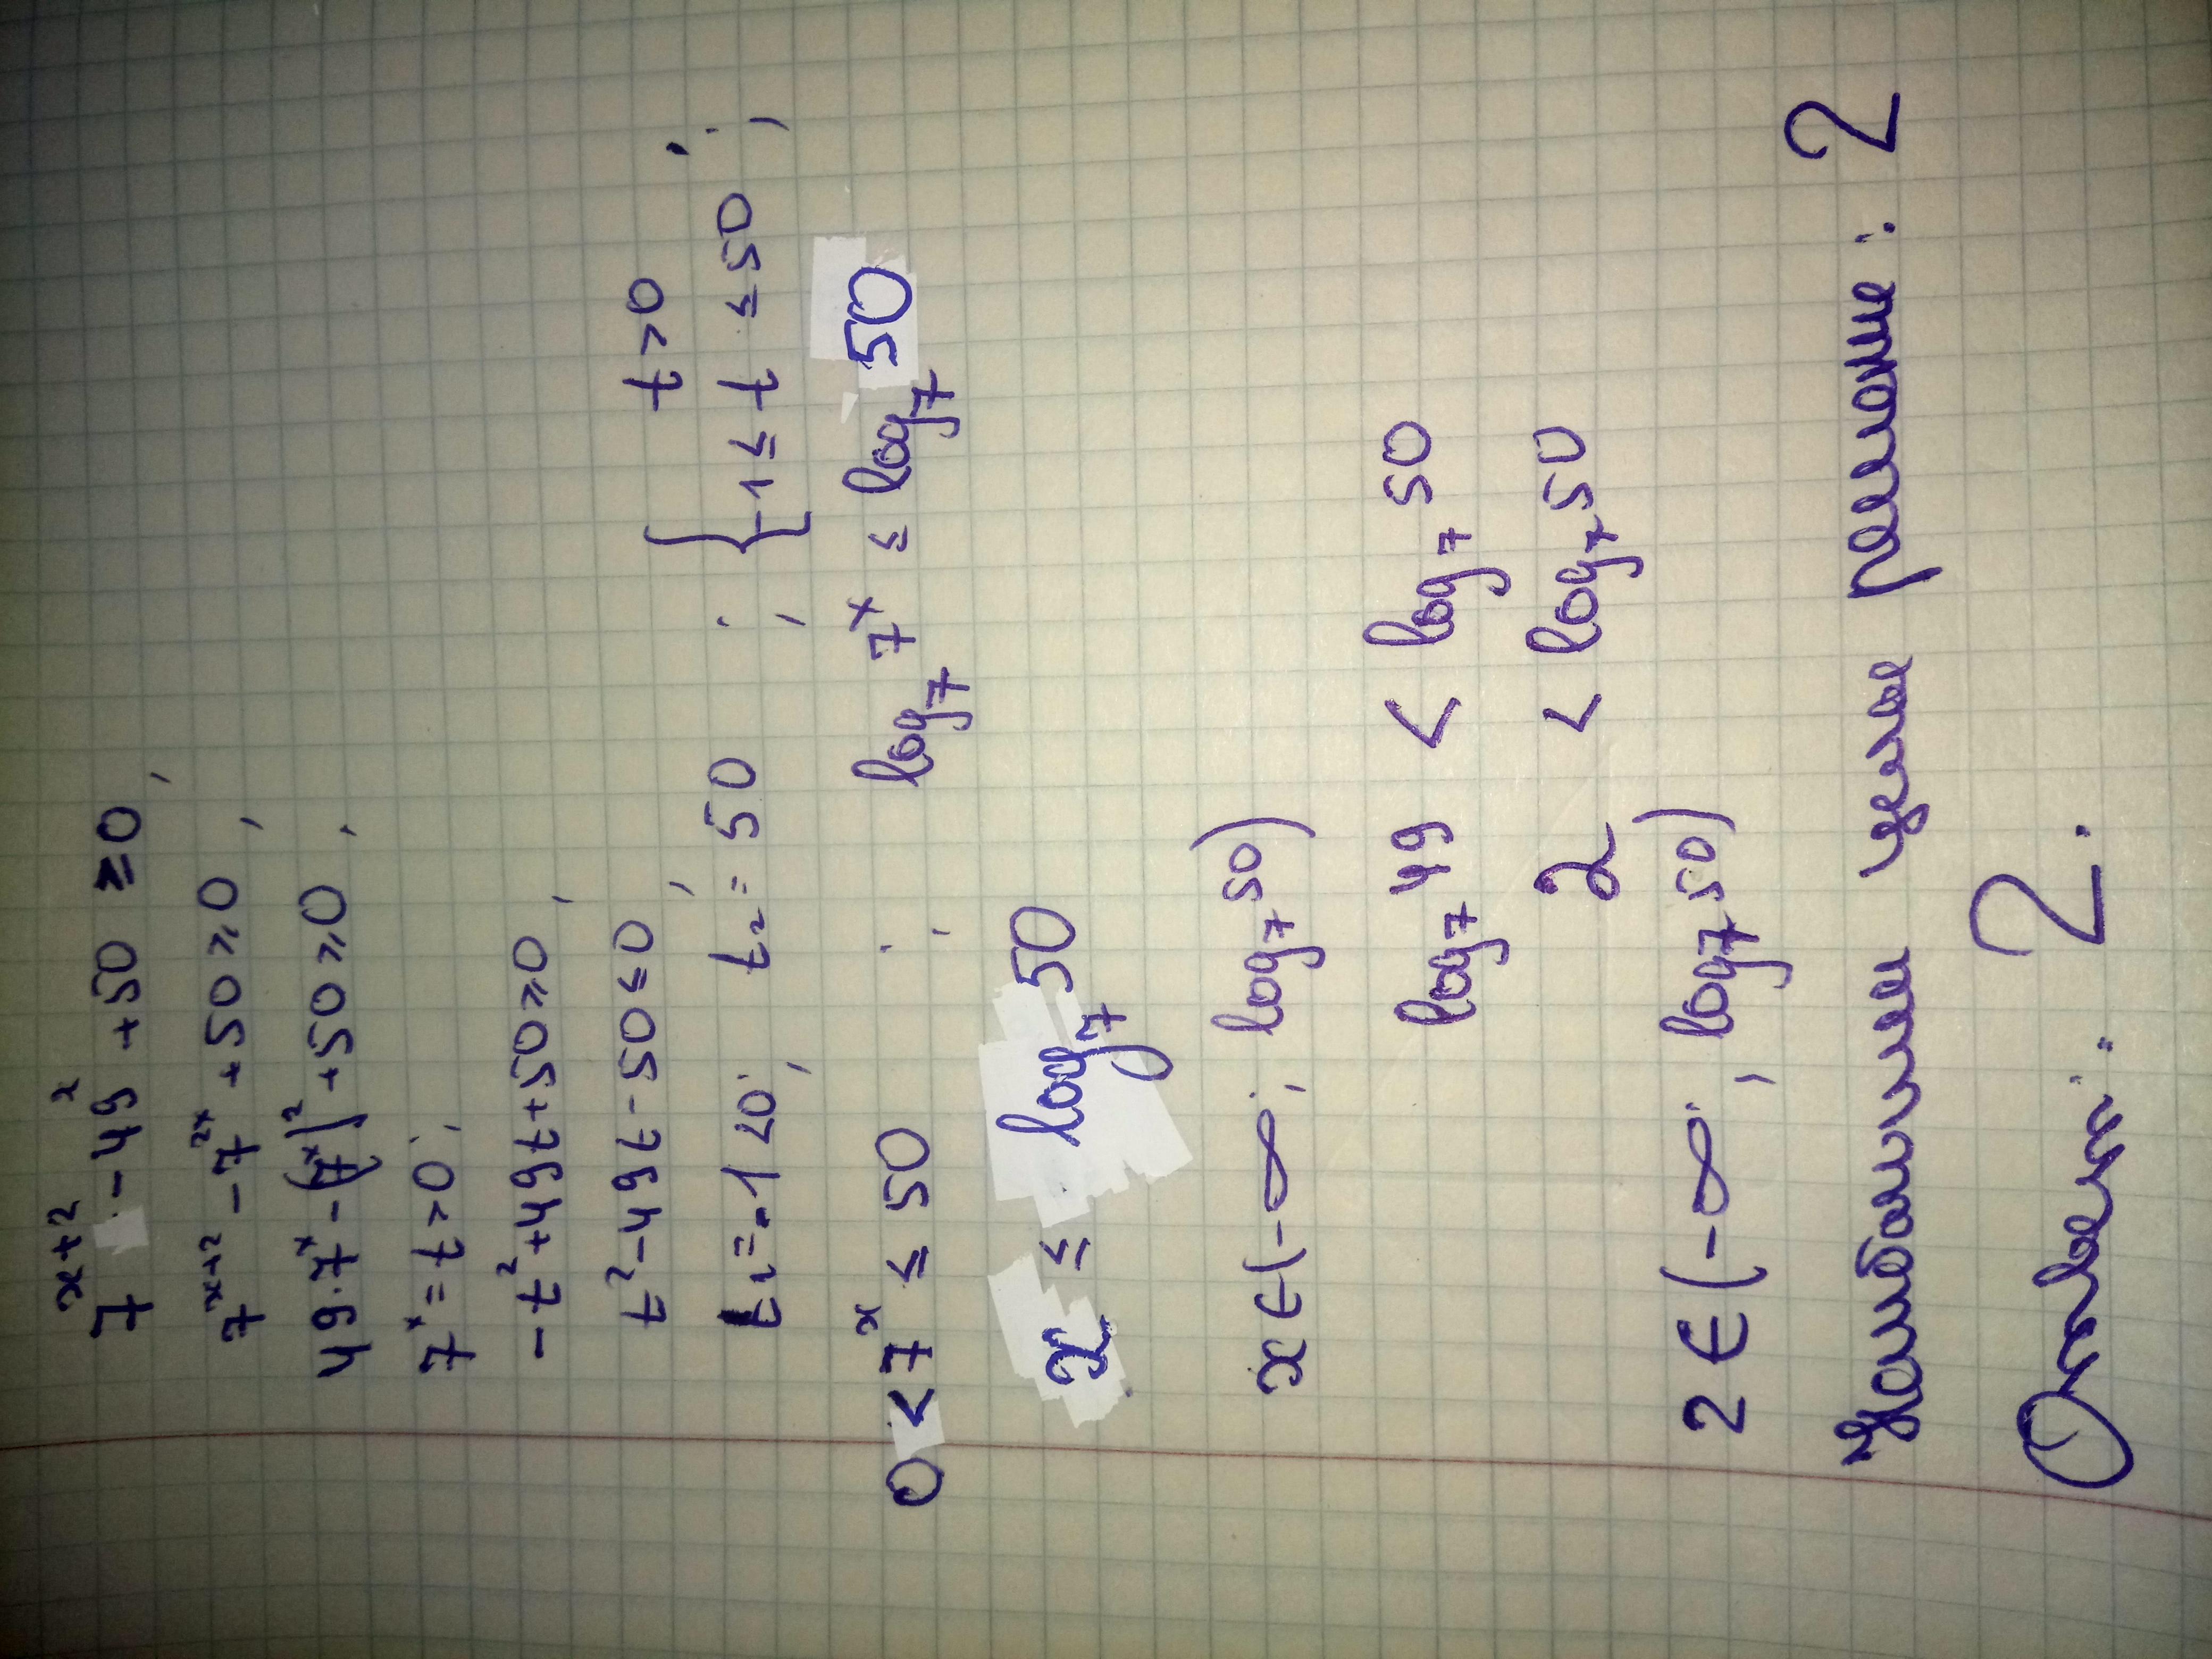 7^{x+2} - 49^x + 50 ≥ 0;
7^{x+2} - 7^{2x} + 50 ≥ 0;
49·7^x - (7^x)^2 + 50 ≥ 0;
7^x = t > 0;
-t^2 + 49t + 50 ≥ 0;
t^2 - 49t - 50 ≤ 0;
t_1 = -1 < 0; t_2 = 50; { t > 0; -1 ≤ t ≤ 50;
0 < 7^x ≤ 50; log_7 7^x ≤ log_7 50
x ≤ log_7 50
x ∈ (-∞; log_7 50)
log_7 49 < log_7 50
2 < log_7 50
2 ∈ (-∞; log_7 50)
Наибольшее целое решение: 2
Ответ: 2.